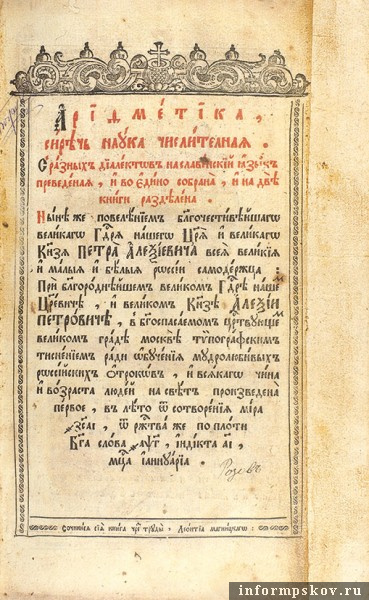 Аріѳметіка,
сирѣчь наука числителная.
С̾разныхъ діалектѡвъ на славенскій ѧзыкъ
преведеная, и во едино собрана, и на двѣ
книги раздѣлена.
Нынѣ же повелѣніемъ благочестивѣйшагѡ
великагѡ Гдⷭ҇рѧ нашегѡ Цр҃ѧ и великагѡ
Кн҃зѧ ПЕТРА АЛЕѮІЕВИЧА всеѧ великіѧ
и малыѧ и бѣлыѧ рѡссіи самодержца:
При благороднѣйшем великом Гдⷭ҇рѣ наше
Цр҃евичѣ, и великом Кн҃зѣ АЛЕѮІИ
ПЕТРОВИЧѢ, в бг҃оспасаемом цр҃твующе
великом градѣ москвѣ тѵпографским
тисненіем ради ѡбученіѧ мудролюбивыхъ
рѡссійскихъ отрокѡвъ, и всѧкагѡ чина
и возраста людей на свѣтъ произведена
первое, в лѣто ѿ сотвореніѧ міра
҂зсаі, ѿ ржⷭ҇тва же по плоти
Бг҃а слова ҂аѱг, індікта аі,
мцⷭ҇а іаннуаріа.
Сочинисѧ сіѧ книга чрез труды Леонтіа магницкагѡ:
informpskov.ru